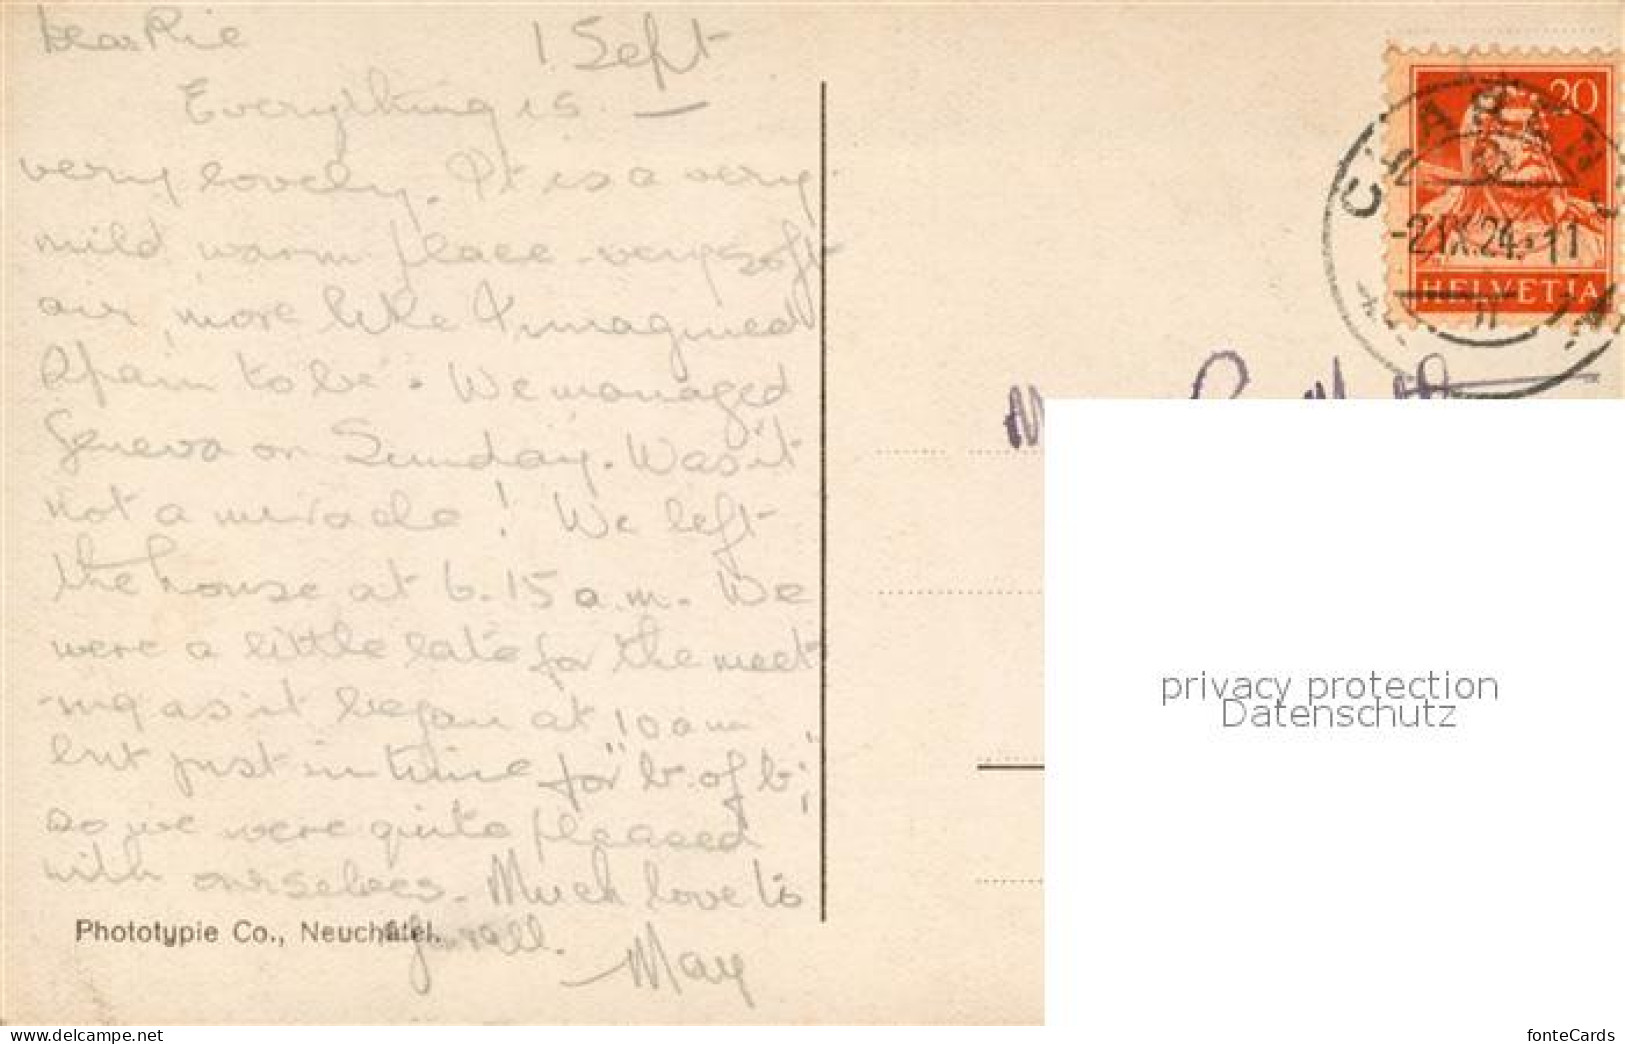 Dear Rie
1 Sept
Everything is
very lovely. It is a very
mild warm place - very soft
air, more like I imagined
Spain to be. We managed
Geneva on Sunday. Was it
not a miracle! We left
the house at 6.15 a.m. We
were a little late for the meet
-ing as it began at 10 am
but just in time for "b. of b",
so we were quite pleased
with ourselves. Much love to
you all.
May
Phototypie Co., Neuchâtel.
20
-2.IX.24.-11
HELVETIA
privacy protection
Datenschutz
fonteCards